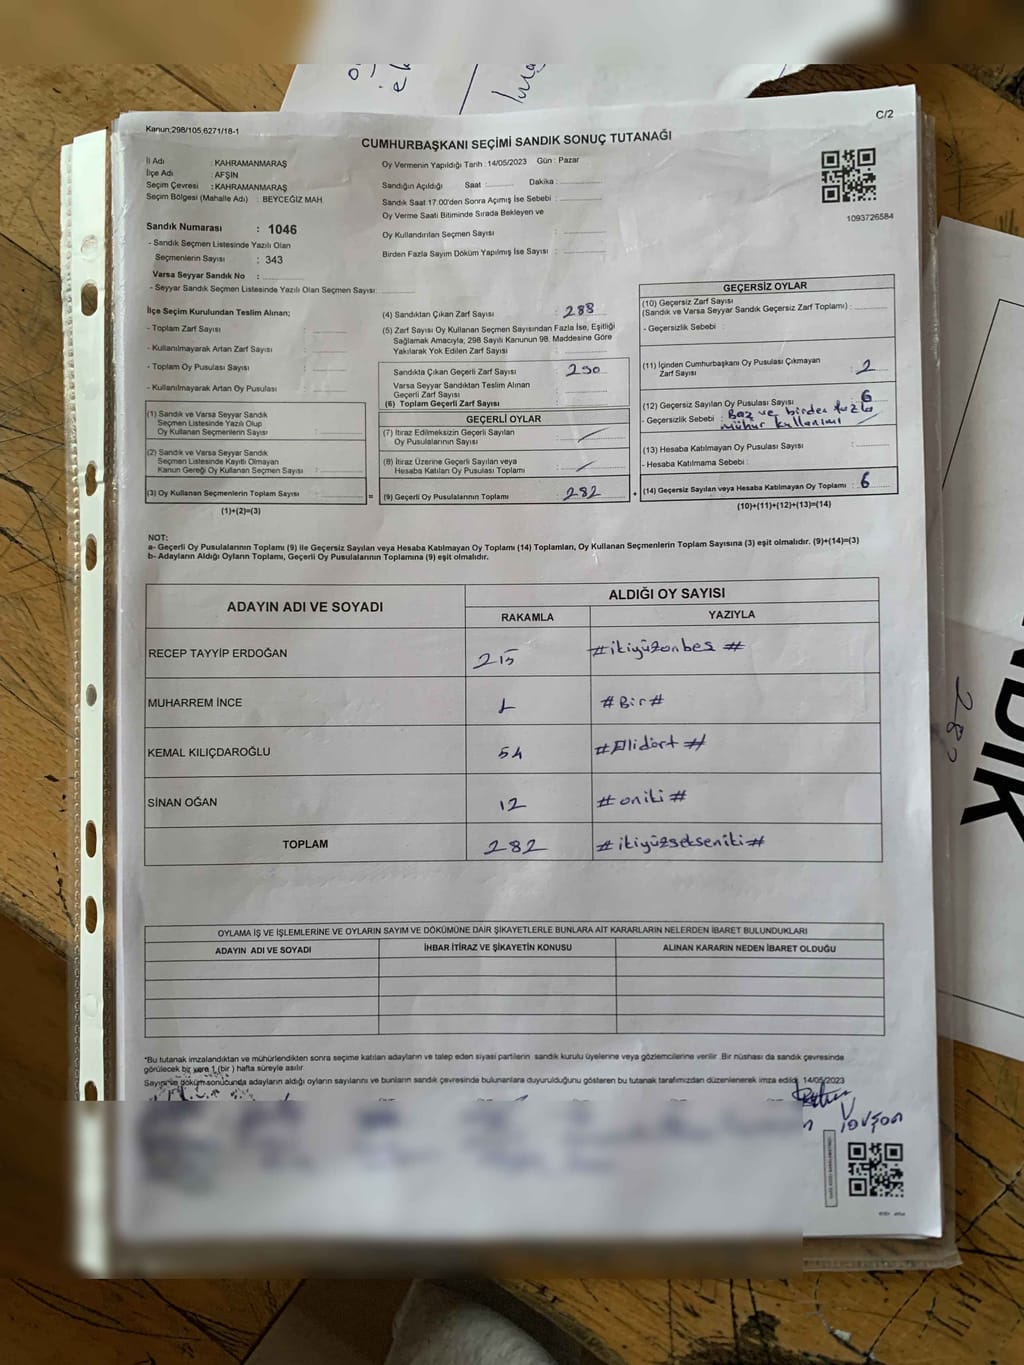 C/2
Kanun;298/105;6271/18-1
CUMHURBAŞKANI SEÇİMİ SANDIK SONUÇ TUTANAĞI
İl Adı : KAHRAMANMARAŞ
İlçe Adı : AFŞİN
Seçim Çevresi : KAHRAMANMARAŞ
Seçim Bölgesi (Mahalle Adı) : BEYCEĞİZ MAH.
Oy Vermenin Yapıldığı Tarih : 14/05/2023 Gün : Pazar
Sandığın Açıldığı Saat : Dakika :
Sandık Saat 17.00'den Sonra Açılmış İse Sebebi :
Oy Verme Saati Bitiminde Sırada Bekleyen ve
Oy Kullandırılan Seçmen Sayısı :
Birden Fazla Sayım Döküm Yapılmış İse Sayısı :
1093726584
Sandık Numarası : 1046
- Sandık Seçmen Listesinde Yazılı Olan
Seçmenlerin Sayısı : 343
Varsa Seyyar Sandık No :
- Seyyar Sandık Seçmen Listesinde Yazılı Olan Seçmen Sayısı:
İlçe Seçim Kurulundan Teslim Alınan;
- Toplam Zarf Sayısı :
- Kullanılmayarak Artan Zarf Sayısı :
- Toplam Oy Pusulası Sayısı :
- Kullanılmayarak Artan Oy Pusulası :
(1) Sandık ve Varsa Seyyar Sandık
Seçmen Listesinde Yazılı Olup
Oy Kullanan Seçmenlerin Sayısı :
(2) Sandık ve Varsa Seyyar Sandık
Seçmen Listesinde Kayıtlı Olmayan
Kanun Gereği Oy Kullanan Seçmen Sayısı :
(3) Oy Kullanan Seçmenlerin Toplam Sayısı :
=
(1)+(2)=(3)
(4) Sandıktan Çıkan Zarf Sayısı : 288
(5) Zarf Sayısı Oy Kullanan Seçmen Sayısından Fazla İse, Eşitliği
Sağlamak Amacıyla; 298 Sayılı Kanunun 98. Maddesine Göre
Yakılarak Yok Edilen Zarf Sayısı :
Sandıkta Çıkan Geçerli Zarf Sayısı : 290
Varsa Seyyar Sandıktan Teslim Alınan
Geçerli Zarf Sayısı :
(6) Toplam Geçerli Zarf Sayısı :
GEÇERLİ OYLAR
(7) İtiraz Edilmeksizin Geçerli Sayılan
Oy Pusulalarının Sayısı :
(8) İtiraz Üzerine Geçerli Sayılan veya
Hesaba Katılan Oy Pusulalarının Sayısı :
(9) Geçerli Oy Pusulalarının Toplamı : 282
+
GEÇERSİZ OYLAR
(10) Geçersiz Zarf Sayısı
(Sandık ve Varsa Seyyar Sandık Geçersiz Zarf Toplamı) :
- Geçersizlik Sebebi :
(11) İçinden Cumhurbaşkanı Oy Pusulası Çıkmayan
Zarf Sayısı : 2
(12) Geçersiz Sayılan Oy Pusulası Sayısı : 6
- Geçersizlik Sebebi : Boz ve birden fazla
mühür kullanımı
(13) Hesaba Katılmayan Oy Pusulası Sayısı :
- Hesaba Katılmama Sebebi :
(14) Geçersiz Sayılan veya Hesaba Katılmayan Oy Toplamı : 6
(10)+(11)+(12)+(13)=(14)
NOT:
a- Geçerli Oy Pusulalarının Toplamı (9) ile Geçersiz Sayılan veya Hesaba Katılmayan Oy Toplamı (14) Toplamları, Oy Kullanan Seçmenlerin Toplam Sayısına (3) eşit olmalıdır. (9)+(14)=(3)
b- Adayların Aldığı Oyların Toplamı, Geçerli Oy Pusulalarının Toplamına (9) eşit olmalıdır.
ADAYIN ADI VE SOYADI
ALDIĞI OY SAYISI
RAKAMLA YAZIYLA
RECEP TAYYİP ERDOĞAN 215 #ikiyüzonbeş#
MUHARREM İNCE 1 #Bir#
KEMAL KILIÇDAROĞLU 54 #Ellidört#
SİNAN OĞAN 12 #oniki#
TOPLAM 282 #ikiyüzsekseniki#
OYLAMA İŞ VE İŞLEMLERİNE VE OYLARIN SAYIM VE DÖKÜMÜNE DAİR ŞİKAYETLERLE BUNLARA AİT KARARLARIN NELERDEN İBARET BULUNDUKLARI
ADAYIN ADI VE SOYADI İHBAR İTİRAZ VE ŞİKAYETİN KONUSU ALINAN KARARIN NEDEN İBARET OLDUĞU
*Bu tutanak imzalandıktan ve mühürlendikten sonra seçime katılan adayların ve talep eden siyasi partilerin sandık kurulu üyelerine veya gözlemcilerine verilir. Bir nüshası da sandık çevresinde
görülecek bir yere 1 (bir) hafta süreyle asılır.
Sayım ve döküm sonucunda adayların aldığı oyların sayılarını ve bunların sandık çevresinde bulunanlara duyurulduğunu gösteren bu tutanak tarafımızdan düzenlenerek imza edildi. 14/05/2023
282